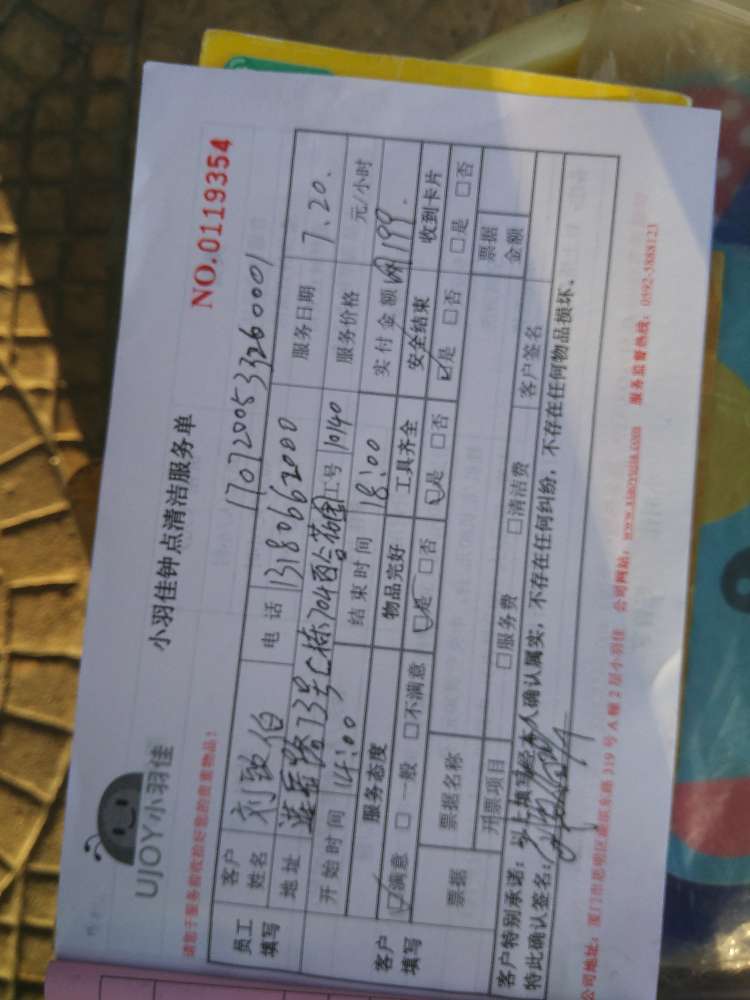 UJOY小羽佳
小羽佳钟点清洁服务单
NO.0119354
请您于服务前收拾好您的贵重物品!
1707200533260001
员工填写 客户姓名 刘 伯 电话 13180662000 服务日期 7.20.
地址 莲岳路73号C栋704西合花园 工号 10140 服务价格 元/小时
开始时间 14:00 结束时间 18:00 实付金额 199.
客户填写 服务态度 物品完好 工具齐全 安全结束 收到卡片
☑满意 □一般 □不满意 ☑是 □否 ☑是 □否 ☑是 □否 □是 □否
票据 票据名称 票据金额
开票项目 □服务费 □清洁费 客户签名
客户特别承诺:以上填写经本人确认属实,不存在任何纠纷,不存在任何物品损坏。
特此确认签名:
公司地址:厦门市思明区湖滨东路319号A幢2层小羽佳 公司网站:www.xiaoyujia.com 服务监督热线:0592-5888123